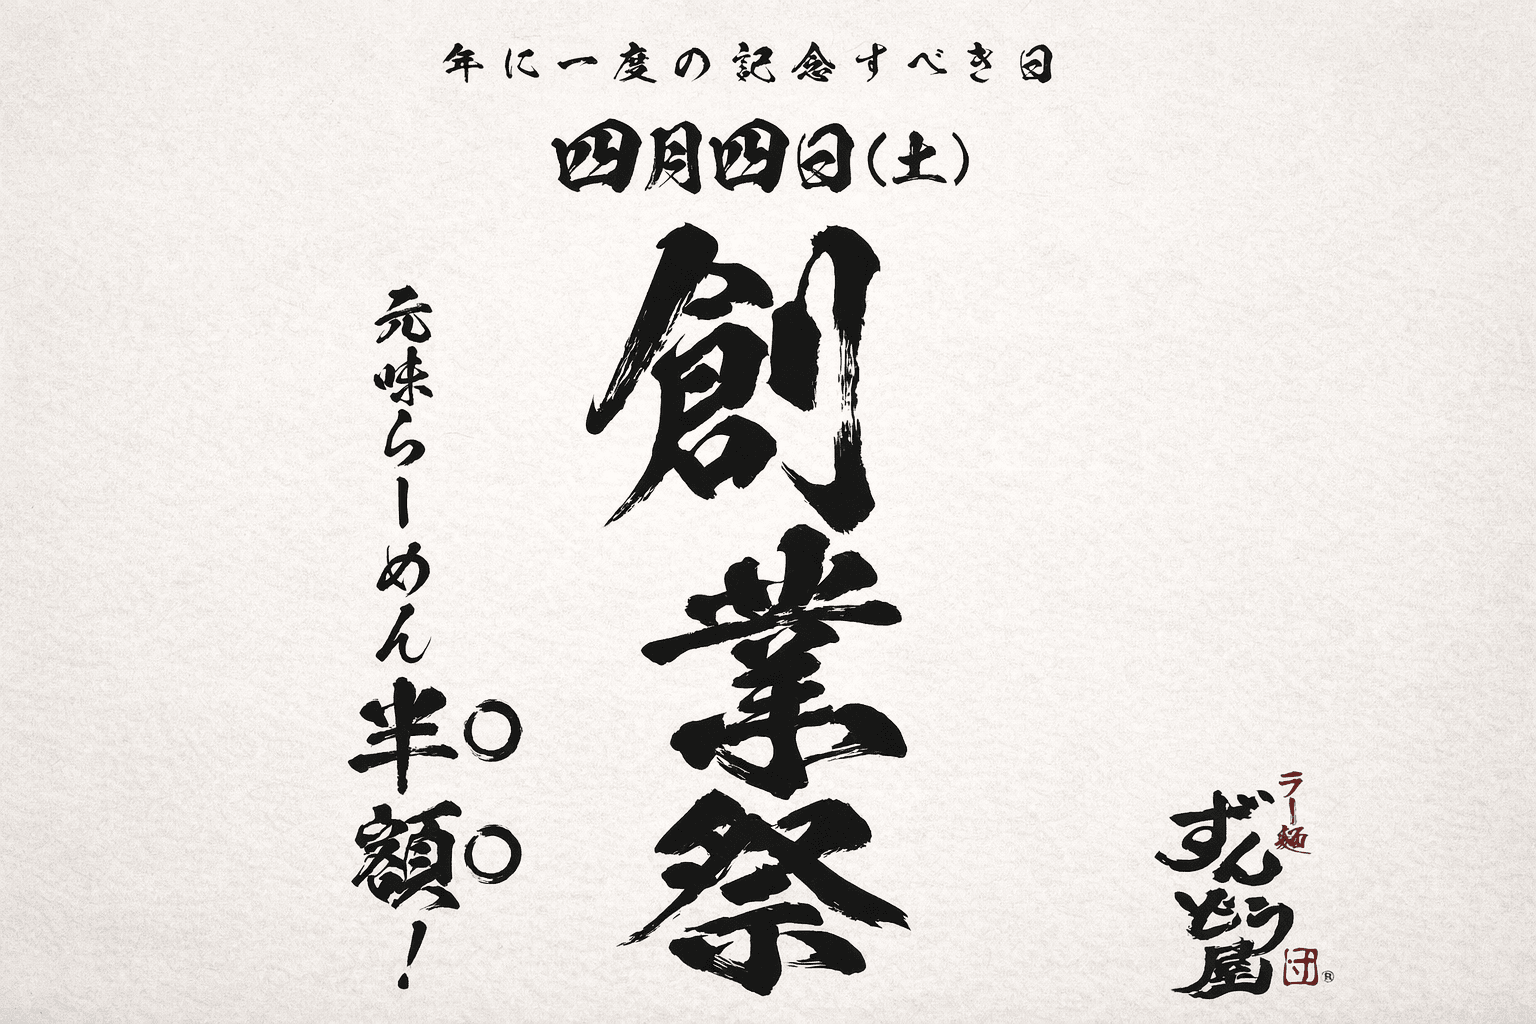 年に一度の記念すべき日
四月四日(土)
創業祭
元味らーめん半額!
ラー麺
ずんどう屋
団
®